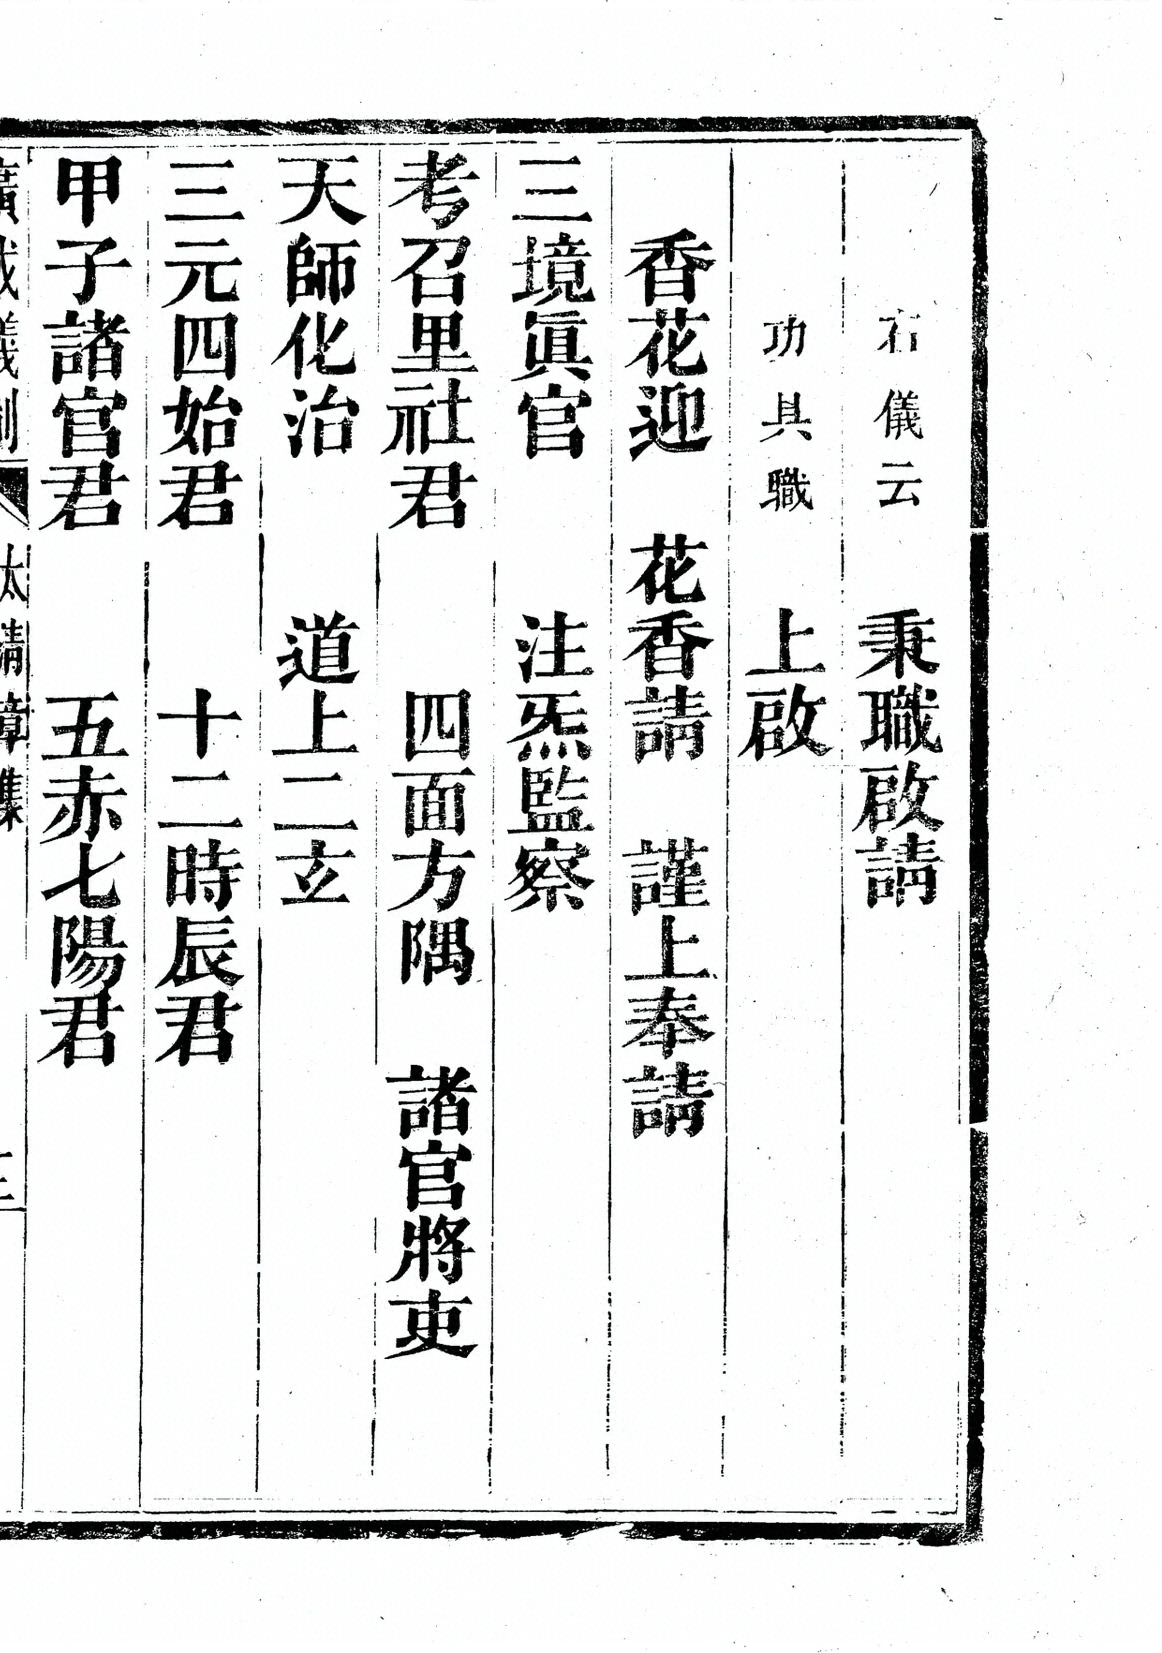 右儀云　秉職啟請
功具職　上啟
香花迎　花香請　謹上奉請
三境眞官　注炁監察
考召里社君　四面方隅　諸官將吏
天師化治　道上二玄
三元四始君　十二時辰君
甲子諸官君　五赤七陽君
廣成儀制　太清章集　三